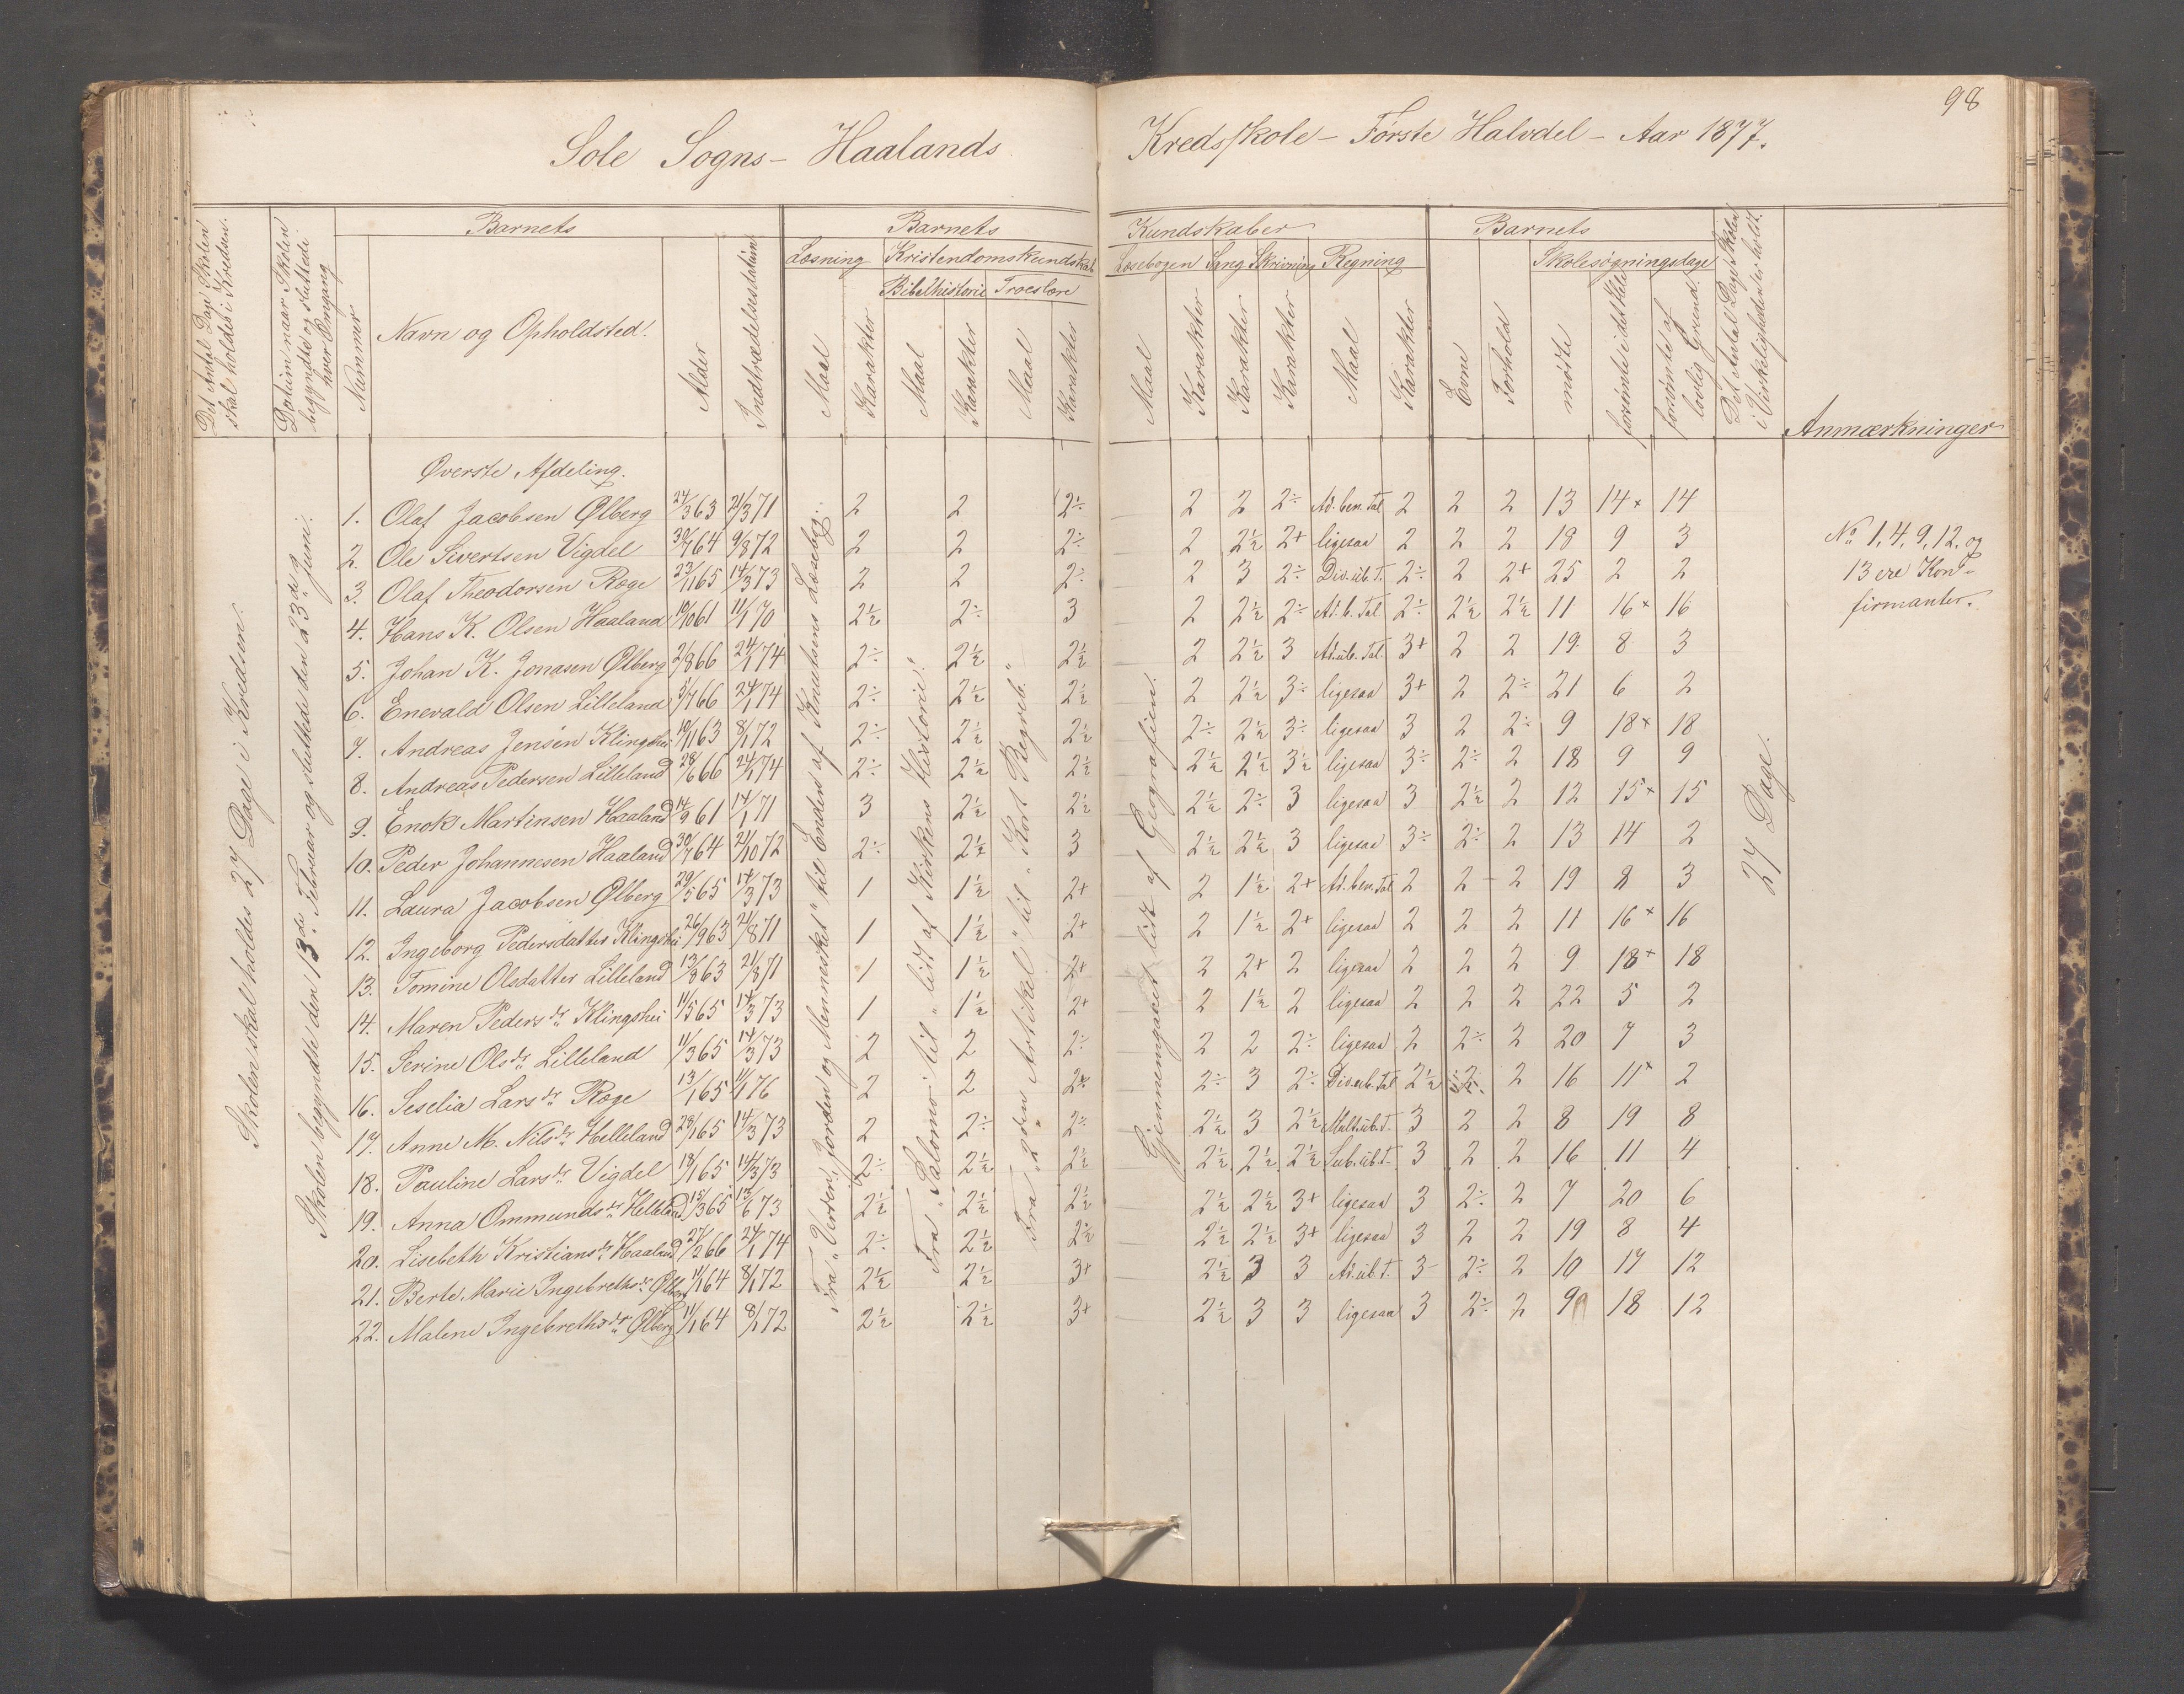 98
Sole Sogns- Haalands Kredsskole - Første Halvdel - Aar 1877.
Det Antal Dage Skolen skal holdes i Kredsen.
Datum naar Skolen begyndte og sluttede i hver Omgang
Barnets
Nummer
Navn og Opholdsted.
Alder
Indtrædelsesdatum
Barnets Kundskaber
Læsning
Kristendomskundskab
Bibelhistorie Troeslære
Maal Karakter Maal Karakter Maal Karakter
Læsebogen Sang Skrivning Regning
Maal Karakter Karakter Karakter Maal Karakter
Barnets
Evne Forhold
Skolesøgningsdage
mødte
forsømte i det Hele
forsømte af lovlig Grund.
Det Antal Dage Skolen i Virkeligheden er holdt.
Anmærkninger
Skolen skal holdes 27 Dage i Kredsen.
Skolen begyndte den 13de Februar og sluttede den 23de Juni.
Fra "Verden, Jorden og Mennesket" til Enden af Knudsens Læsebog.
Fra "Salomo" til "lidt af Kirkens Historie".
Fra "2den Artikel" til "Kort Begreb."
Gjennemgaaet lidt af Geografien.
27 Dage.
Øverste Afdeling.
1. Olaf Jacobsen Ølberg 24/3 63 21/3 71 2 2 2÷ — 2 2 2÷ Ad. ben. Tal 2 2 2 13 14× 14
2. Ole Sivertsen Vigdel 30/7 64 9/8 72 2 2 2÷ — 2 2½ 2+ ligesaa 2 2 2 18 9 3
3. Olaf Theodorsen Røge 23/11 65 14/3 73 2 2 2÷ — 2 3 2÷ Div. üb. T. 2÷ 2 2+ 25 2 2
4. Hans K. Olsen Haaland 10/10 61 11/1 70 2½ 2÷ 3 — 2 2½ 2÷ Ad. b. Tal 2÷ 2½ 2½ 11 16× 16
5. Johan K. Jonasen Ølberg 2/8 66 24/1 74 2÷ 2½ 2½ — 2 2½ 3 Ad. üb. Tal. 3+ 2 2 19 8 3
6. Enevald Olsen Lilleland 5/7 66 24/1 74 2÷ 2½ 2½ — 2 2½ 3÷ ligesaa 3+ 2 2÷ 21 6 2
7. Andreas Jensen Klingshei 10/11 63 8/1 72 2÷ 2½ 2½ 2÷ 2½ 3÷ ligesaa 3 2 2÷ 9 18× 18
8. Andreas Pedersen Lilleland 28/6 66 24/1 74 2÷ 2½ 2½ 2½ 2½ 3½ ligesaa 3÷ 2÷ 2 18 9 9
9. Enok Martinsen Haaland 14/9 61 14/1 71 3 2½ 2½ 2½ 2÷ 3 ligesaa 3 2½ 2 12 15× 15
10. Peder Johannesen Haaland 30/7 64 21/10 72 2÷ 2½ 3 2½ 2½ 3 ligesaa 3÷ 2÷ 2 13 14 2
11. Laura Jacobsen Ølberg 29/5 65 14/3 73 1 1½ 2+ 2 1½ 2+ Ad. ben. Tal 2 2 2 19 8 3
12. Ingeborg Pedersdatter Klingshei 26/9 63 21/8 71 1 1½ 2+ 2 1½ 2+ ligesaa 2 2 2 11 16× 16
13. Tomine Olsdatter Lilleland 13/8 63 21/8 71 1 1½ 2+ 2 2+ 2 ligesaa 2 2 2 9 18× 18
14. Maren Pedersdr Klingshei 11/5 65 14/3 73 1 1½ 2+ 2 1½ 2 ligesaa 2 2 2 22 5 2
15. Serine Olsdr Lilleland 11/3 65 14/3 73 2 2 2÷ 2 2 2÷ ligesaa 2 2÷ 2 20 7 3
16. Seselia Larsdr Røge 13/1 65 11/1 76 2 2 2÷ — 2÷ 3 2÷ Div. ub. Tal 2½ 2÷ 2 16 11× 2
17. Anne M. Nilsdr Helleland 28/1 65 14/3 73 2 2÷ 2÷ — 2½ 3 2½ Mult. üb. T. 3 2 2 8 19 8
18. Pauline Larsdr Vigdel 18/1 65 14/3 73 2÷ 2½ 2½ — 2½ 2½ 2½ Sub. üb. T. 3 2 2 16 11 4
19. Anna Ommundsdr Helleland 15/3 65 12/6 73 2½ 2½ 2½ — 2½ 2½ 3+ ligesaa 3 2÷ 2 7 20 6
20. Lisebeth Kristiansdr Haaland 27/2 66 24/1 74 2÷ 2½ 2½ — 2½ 2½ 3+ ligesaa 3 2 2 19 8 4
21. Berte Marie Ingebrethsdr Ølberg 11/1 64 8/1 72 2½ 2½ 3+ — 2½ 3 3 Ad. üb. T. 3 2÷ 2 10 17 12
22. Malene Ingebrethsdr Ølberg 11/1 64 8/1 72 2½ 2½ 3+ — 2½ 3 3 ligesaa 3 2÷ 2 9 18 12
No 1, 4, 9, 12, og
13 ere Kon-
firmanter.